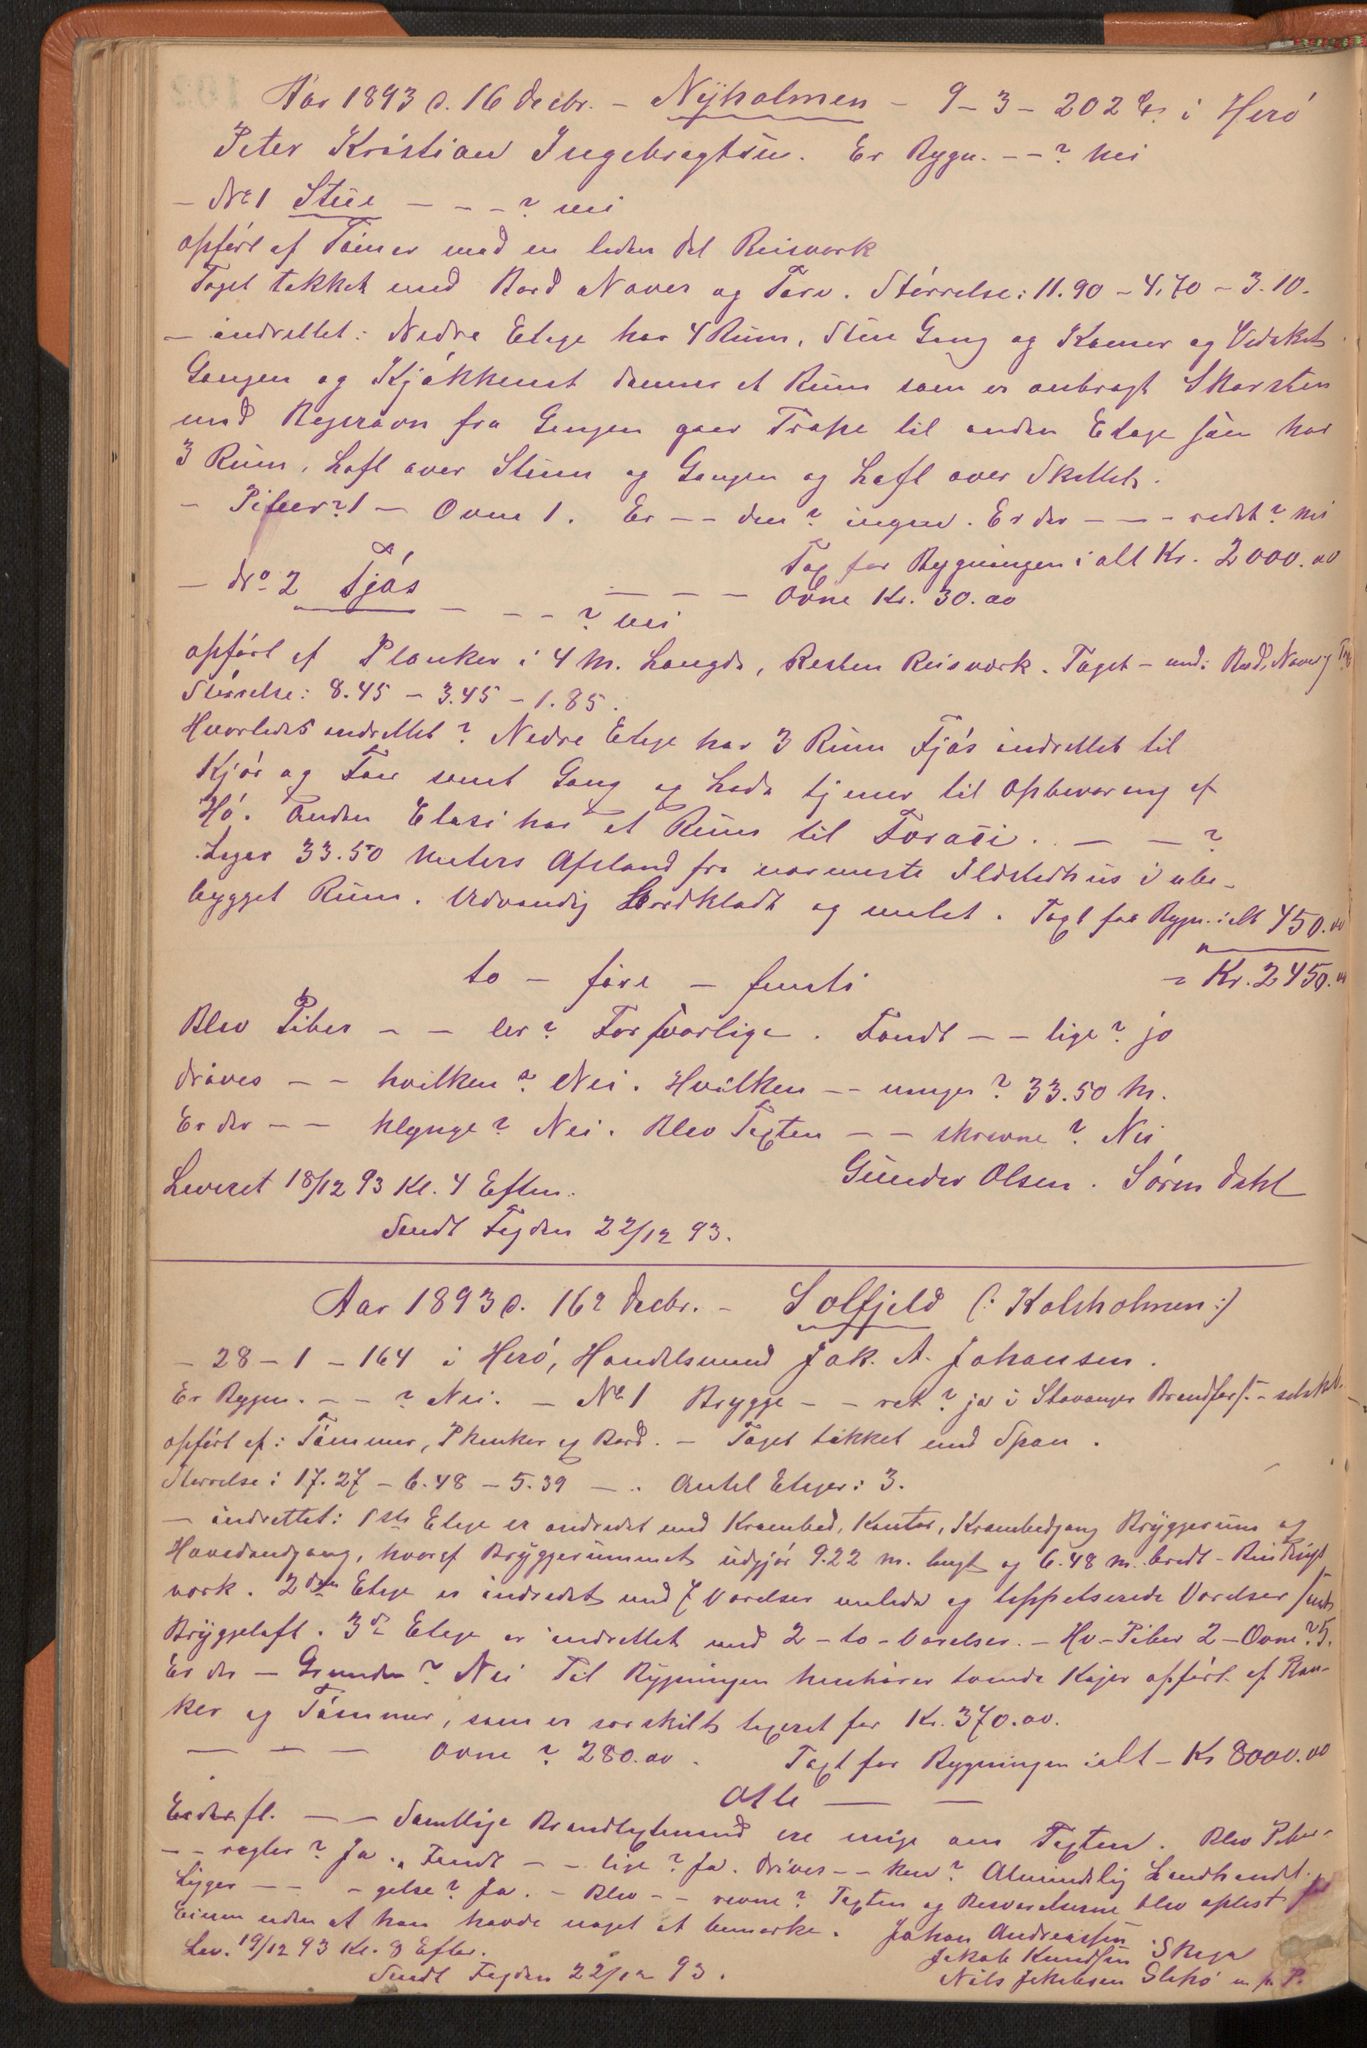 Aar 1893 d. 16 decbr. - Nyholmen - 9 - 3 - 202 i Herø
Peter Kristian Ingebrigtsen. Er Bygn. - - ? nei
- No 1 Stue - - - ? nei
opført af Tømer med en liden del Reisverk
Taget tækket med Bord Næver og Torv. Størrelse: 11.90 - 4.70 - 3.10 -
- indrettet: Nedre Etage har 4 Rum, Stue Gang og Kamer og Vedskot
Gangen og Kjøkkenet danner et Rum som er anbragt Skorsten
med Bagerovn fra Gangen gaar Trape til anden Etage som har
3 Rum, Loft over Stuen og Gangen og Loft over Skottet.
- Piber? 1 - Ovne 1. Er - - den? ingen. Er der - - - redet? nei
Tax for Bygningen i alt Kr. 2000.00
- No 2 Fjøs - - - ? nei
- - - Ovne Kr. 30.00
opført af Planker i 4 M. Længde, Resten Reisværk. Taget - med: Bord, Næver og Torv
Størrelse: 8.45 - 3.45 - 1.85.
Hvorledes indrettet? Nedre Etage har 3 Rum Fjøs indrettet til
Kjør og Faar samt Gang og Lada tjener til opbevaring af
Hø. Anden Etasi har et Rum til Foraar. - - ?
Ligger 33.50 meters Afstand fra nærmeste Ildstedhus i ube-
bygget Rum. Udvændig Bordklædt og malet. Taxt for Bygn. i alt 450.00
= Kr. 2450.00
to - fire - femti
Blev Piber - - ler? Forsvarlige. Fandt - - lige? jo
drives - - hvilken? Nei. Hvilken - - ninger? 33.50 M.
Er der - - klynge? Nei. Blev Taxten - - skrevne? Nei
Leveret 18/12 93 Kl. 4 Efterm. Gunder Olsen. Søren Dahl
Sendt Fogden 22/12 93.
Aar 1893 d. 16 decbr. - Solfjeld (: Kalsholmen :)
- 28 - 1 - 164 i Herø, Handelsmand Jak. A. Johansen.
Er Bygn. - - ? Nei. - No 1 Brygge - - ret? ja i Stavanger Brandfors. - selskb.
opført af: Tømmer, Planker og Bord. - Taget tækket med Spon.
Størrelse: 17.27 - 6.48 - 5.39 - . Antal Etager: 3.
- indrettet: 1ste Etage er indredet med Krambod, Kontor, Krambodgang Bryggerum og
Hovedindgang, hvoraf Bryggerummet udgjør 9.22 m. langt og 6.48 m. bredt - Bindings
værk. 2den Etage er indredet med 7 Værelser malede og tappetserede Værelser samt
Bryggeloft. 3de Etage er indrettet med 2 - to - Værelser. - Hv - Piber 2 - Ovne? 5.
Er der - Grunden? Nei Til Bygningen henhører tvende Kajer opført af Plan-
ker og Tømmer, som er særskilt taxeret for Kr. 370.00.
- - - Ovne? 280.00. Taxt for Bygningen i alt - Kr 8000.00
Otte - -
Er der fl. - - Samtlige Brandtaxtmænd ere enige om Taxten. Blev Piber
- - regler? Ja. Fandt - - lige? Ja. Drives - - ken? Almindelig Landhandel.
Ligger - - - gelse? Ja. - Blev - - revne? Taxten og Besvarelserne blev oplest for
Eieren uden at han havde noget at bemærke. Johan Andreassen
Lev. 19/12 93 Kl. 8 Efter. Jakob Knudsen Skeja
Sendt Fogden 22/12 93. Nils Jakobsen Slapø m. p. P.